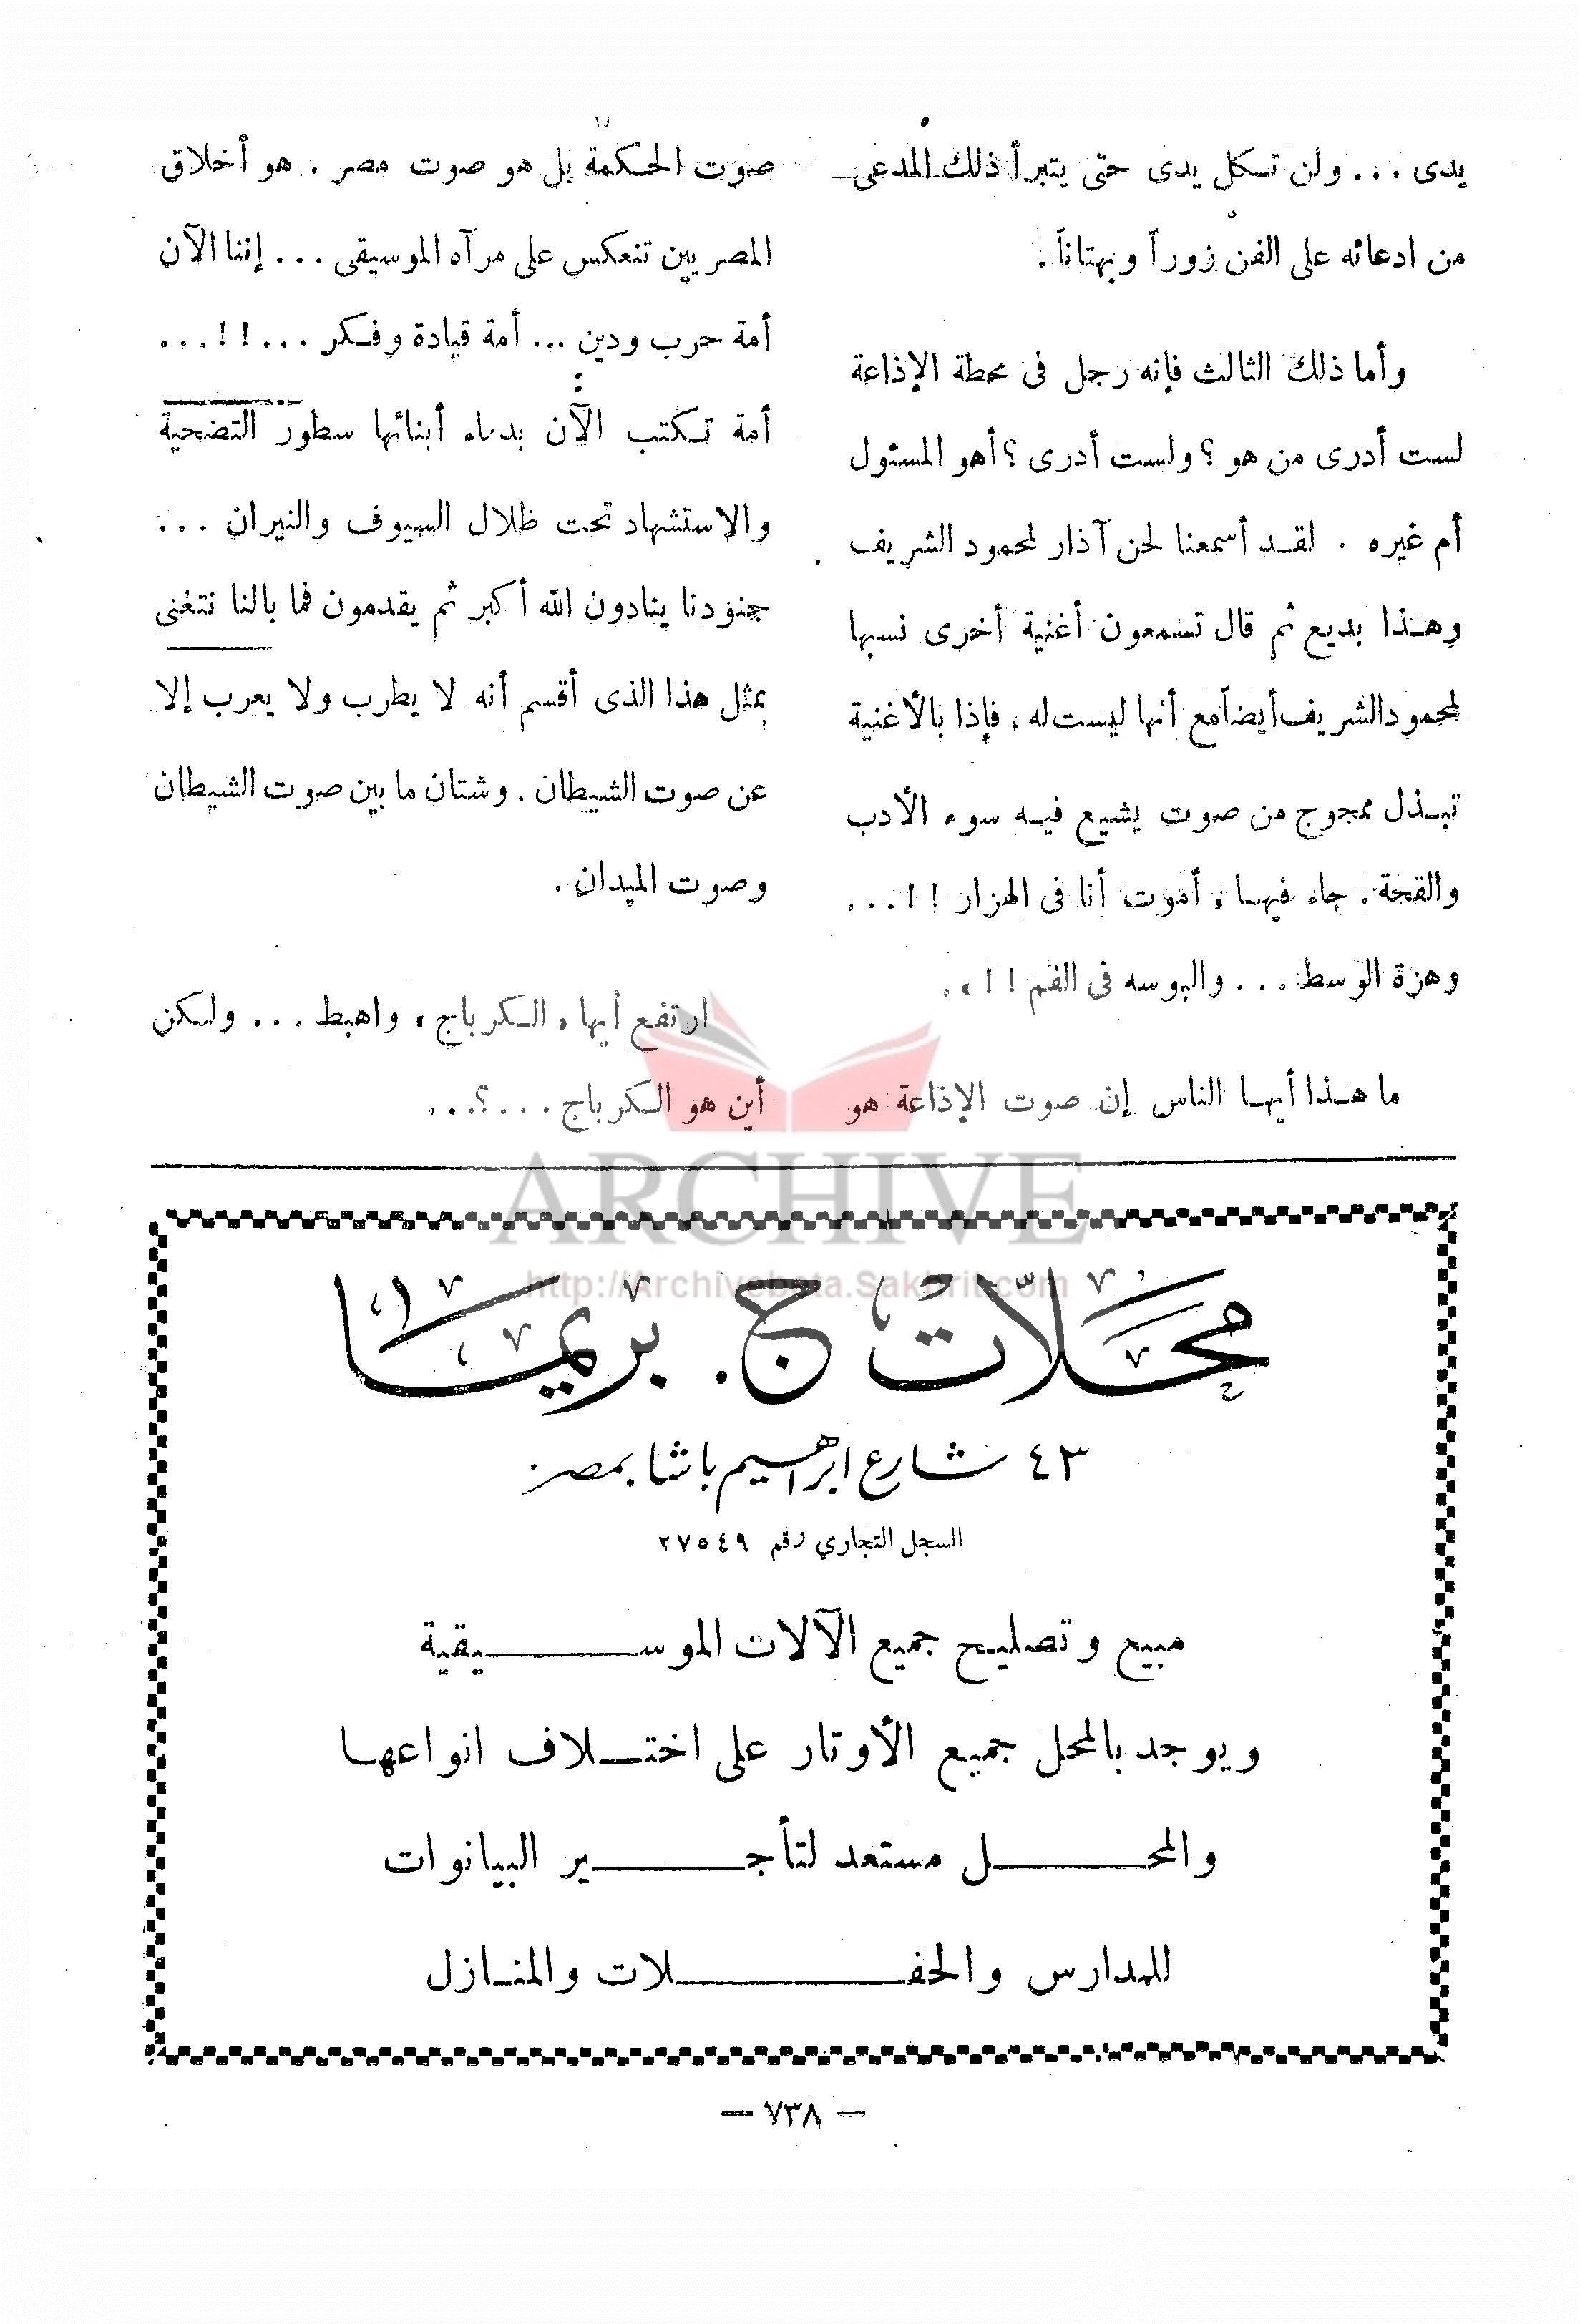 يدى ... ولن تكل يدى حتى يتبرأ ذلك المدعى
من ادعائه على الفن زوراً وبهتاناً.
وأما ذلك الثالث فإنه رجل فى محطة الإذاعة
لست أدرى من هو ؟ ولست أدرى ؟ أهو المسئول
أم غيره . لقد أسمعنا لحن آذار لمحمود الشريف
وهذا بديع ثم قال تسمعون أغنية أخرى نسبها
لمحمود الشريف أيضاً مع أنها ليست له ، فإذا بالأغنية
تبذل ممجوج من صوت يشيع فيه سوء الأدب
والقحة . جاء فيها « أموت أنا فى الهزار !! ...
وهزة الوسط ... والبوسه فى الفم !! » .
ما هذا أيها الناس إن صوت الإذاعة هو
صوت الحكمة بل هو صوت مصر . هو أخلاق
المصريين تنعكس على مرآه الموسيقى ... إننا الآن
أمة حرب ودين ... أمة قيادة وفكر ... !! ...
أمة تكتب الآن بدماء أبنائها سطور التضحية
والاستشهاد تحت ظلال السيوف والنيران ...
جنودنا ينادون الله أكبر ثم يقدمون فما بالنا نتغنى
بمثل هذا الذى أقسم أنه لا يطرب ولا يعرب إلا
عن صوت الشيطان . وشتان ما بين صوت الشيطان
وصوت الميدان .
ارتفع أيها « الكرباج » واهبط ... ولكن
أين هو الكرباج ... ؟ ...
ARCHIVE
http://Archivebeta.Sakhrit.com
محلات ج. بريما
٤٣ شارع ابراهيم باشا بمصر
السجل التجاري رقم ٢٧٥٤٩
مبيع وتصليح جميع الآلات الموسيقية
ويوجد بالمحل جميع الأوتار على اختلاف انواعها
والمحل مستعد لتأجير البيانوات
للمدارس والحفلات والمنازل
— ٧٣٨ —